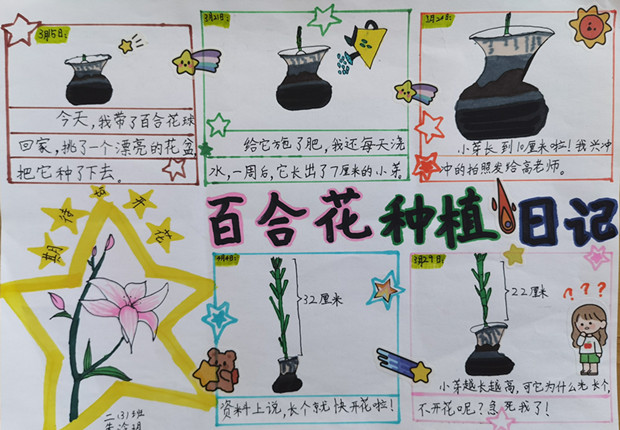 3月5日:
今天,我带了百合花球
回家,挑了一个漂亮的花盆
把它种了下去。
3月21日:
给它施了肥,我还每天浇
水,一周后,它长出了7厘米的小芽。
小芽长到10厘米啦!我兴冲
冲的拍照发给高老师。
百合花种植日记
期待它开花
二(3)班
4月4日:
32厘米
资料上说,长个就快开花啦!
3月29日:
22厘米
???
小芽越长越高,可它为什么光长个,
不开花呢?急死我了!